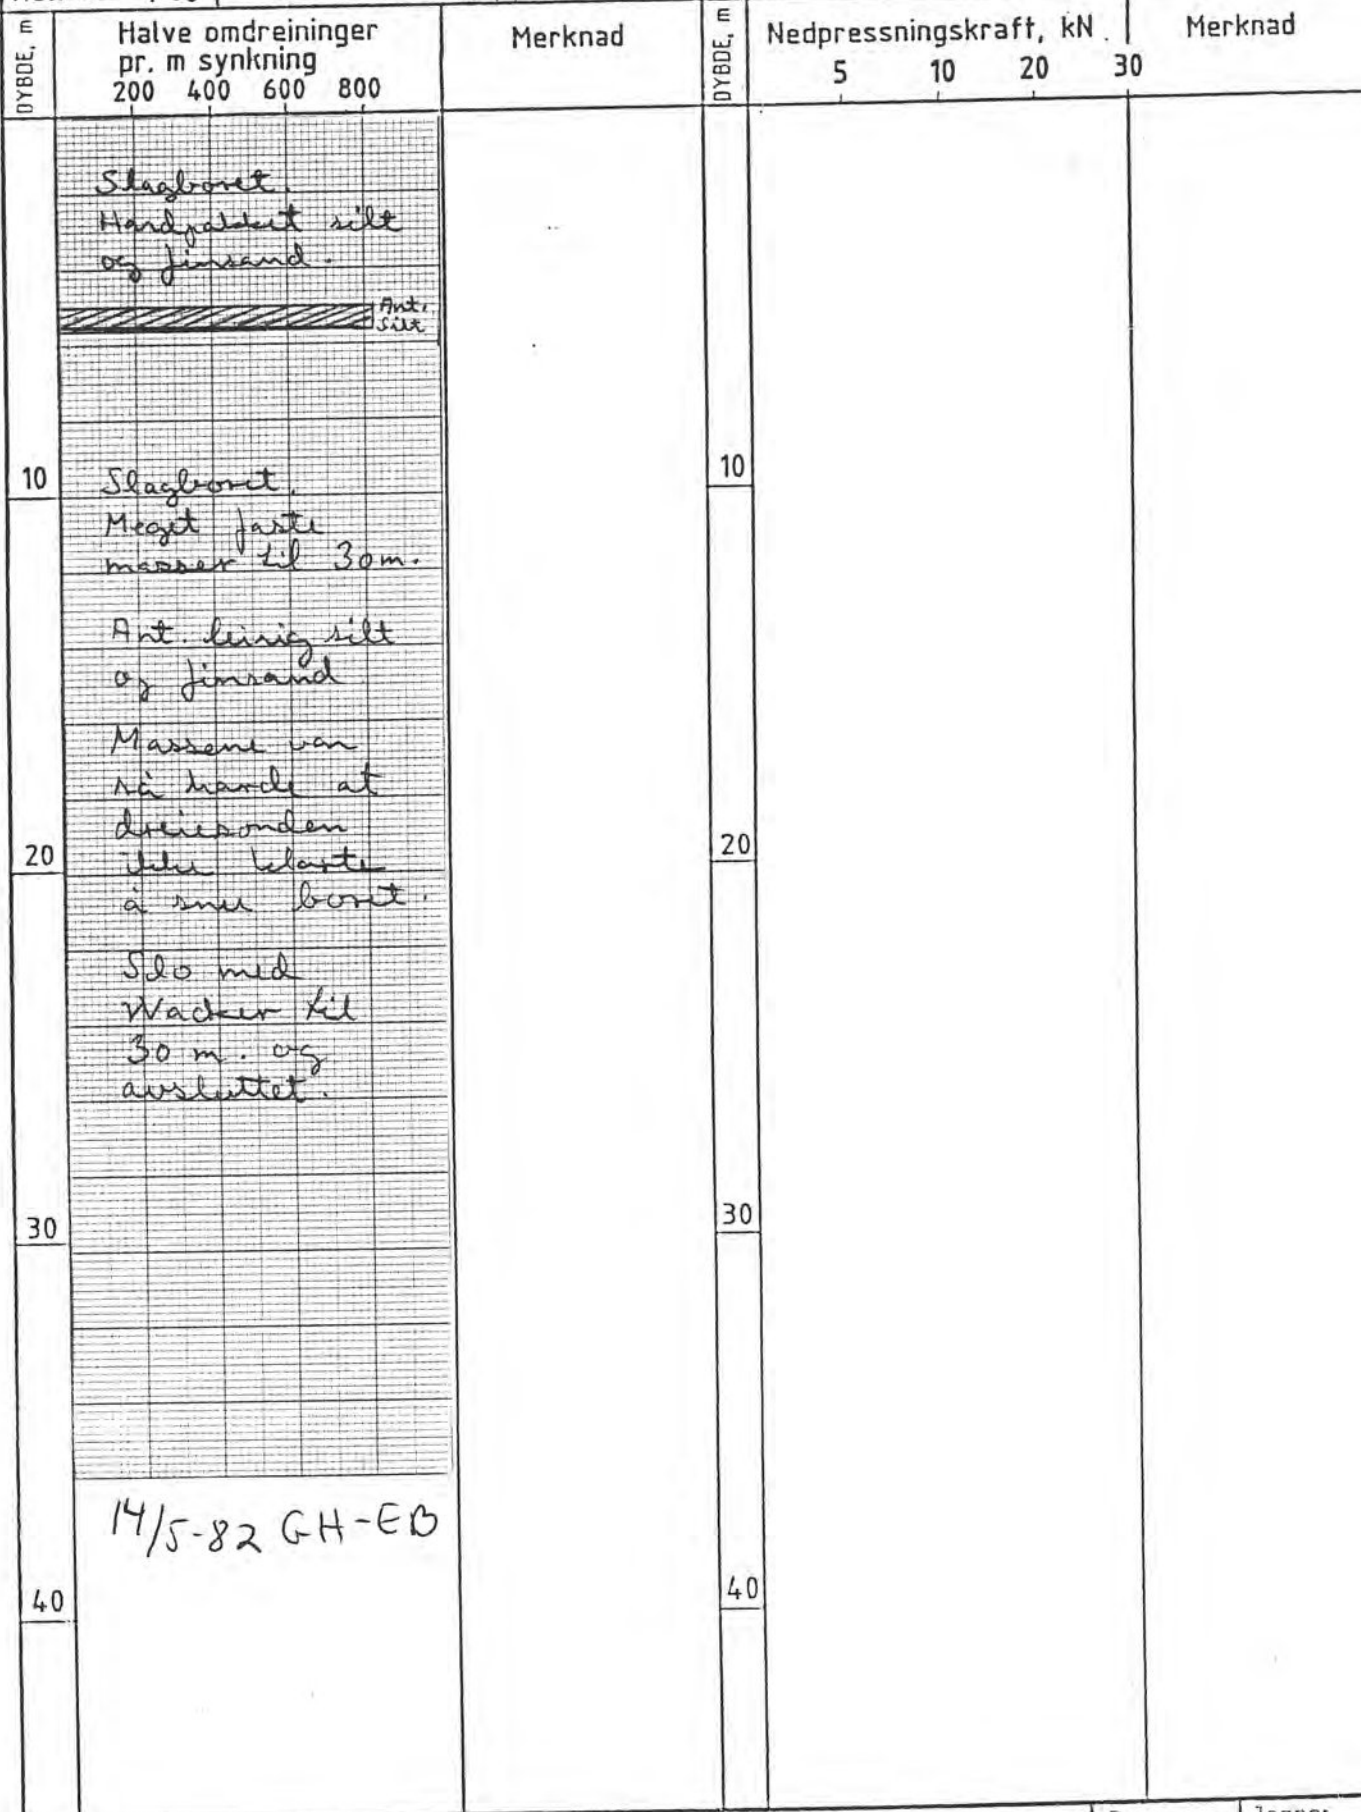 DYBDE, m
Halve omdreininger
pr. m synkning
200 400 600 800
Merknad
DYBDE, m
Nedpressningskraft, kN.
5 10 20 30
Merknad
Slagboret.
Hardpakket silt
og finsand.
Ant.
Silt
10
Slagboret.
Meget faste
masser til 30m.
Ant. leirig silt
og finsand
Massene var
så harde at
dreiesonden
ikke klarte
å snu boret.
20
Slo med
Wacker til
30 m. og
avsluttet.
30
14/5-82 GH-EB
40
10
20
30
40